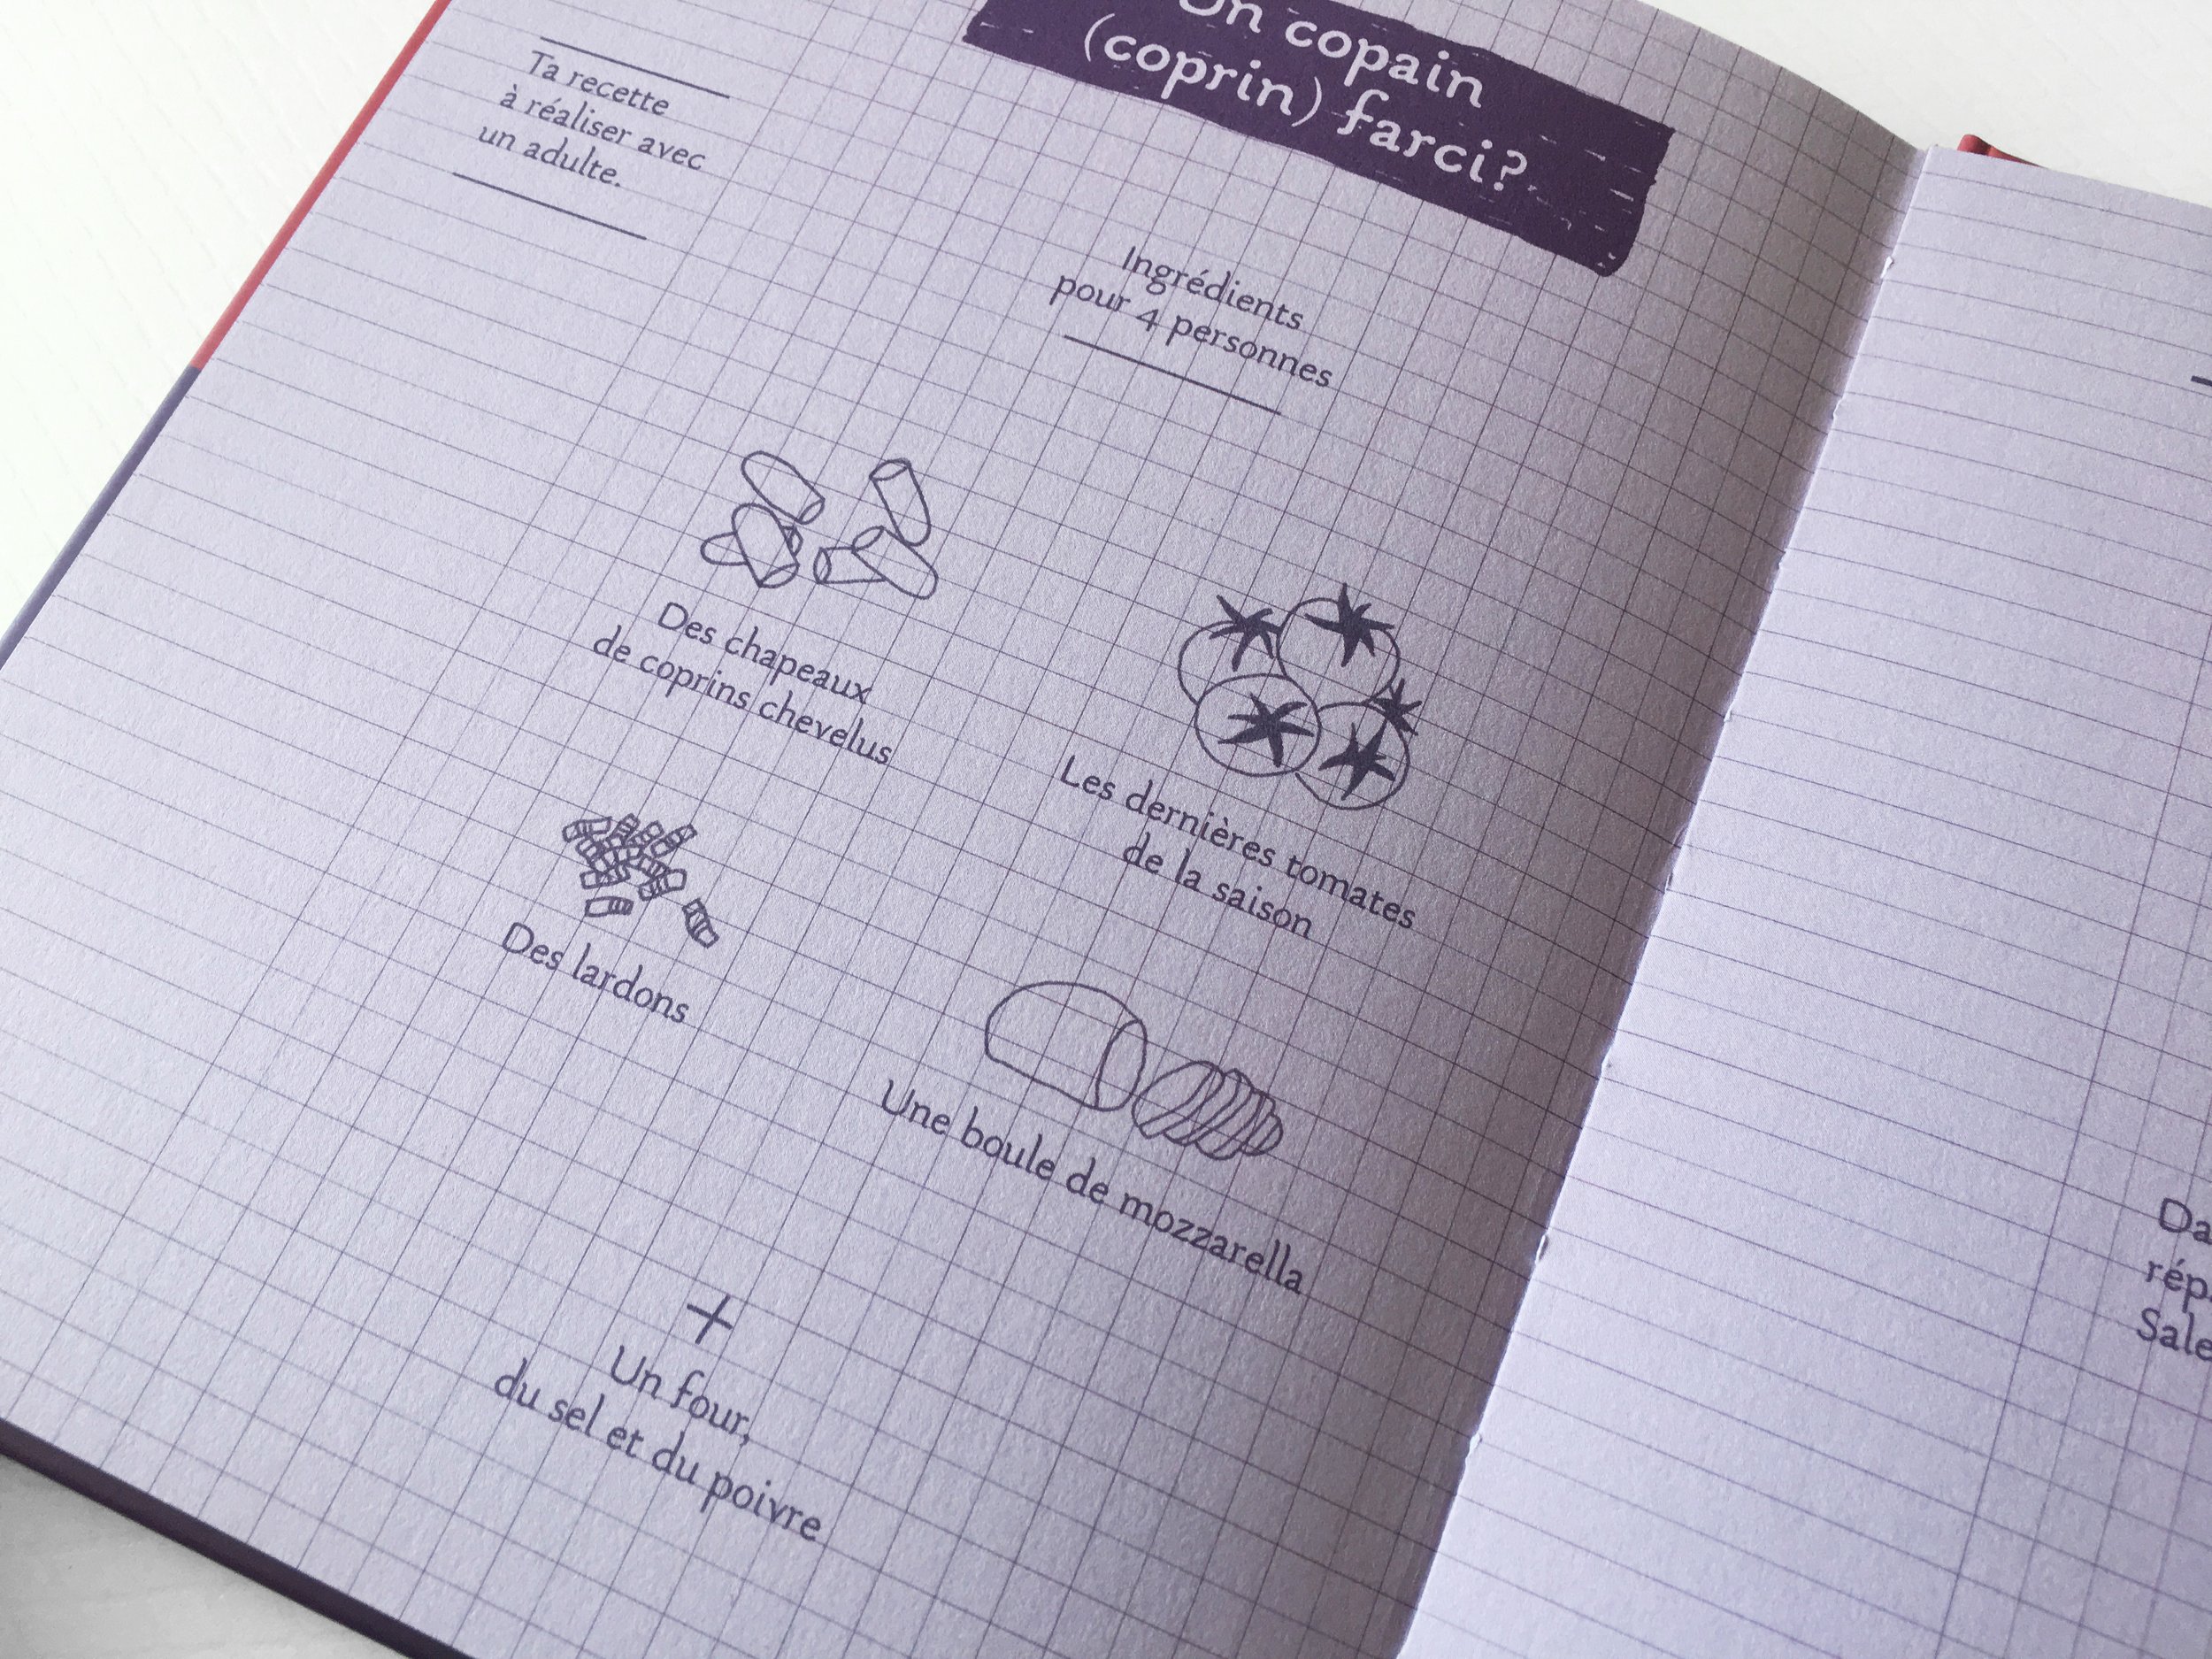 Un copain
(coprin) farci?
Ta recette
à réaliser avec
un adulte.
Ingrédients
pour 4 personnes
Des chapeaux
de coprins chevelus
Les dernières tomates
de la saison
Des lardons
Une boule de mozzarella
+
Un four,
du sel et du poivre